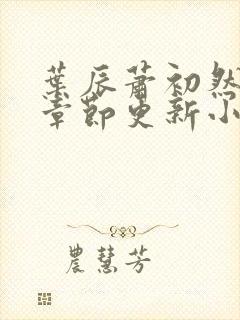 葉辰蕭初然
章節更新小
農慧芳